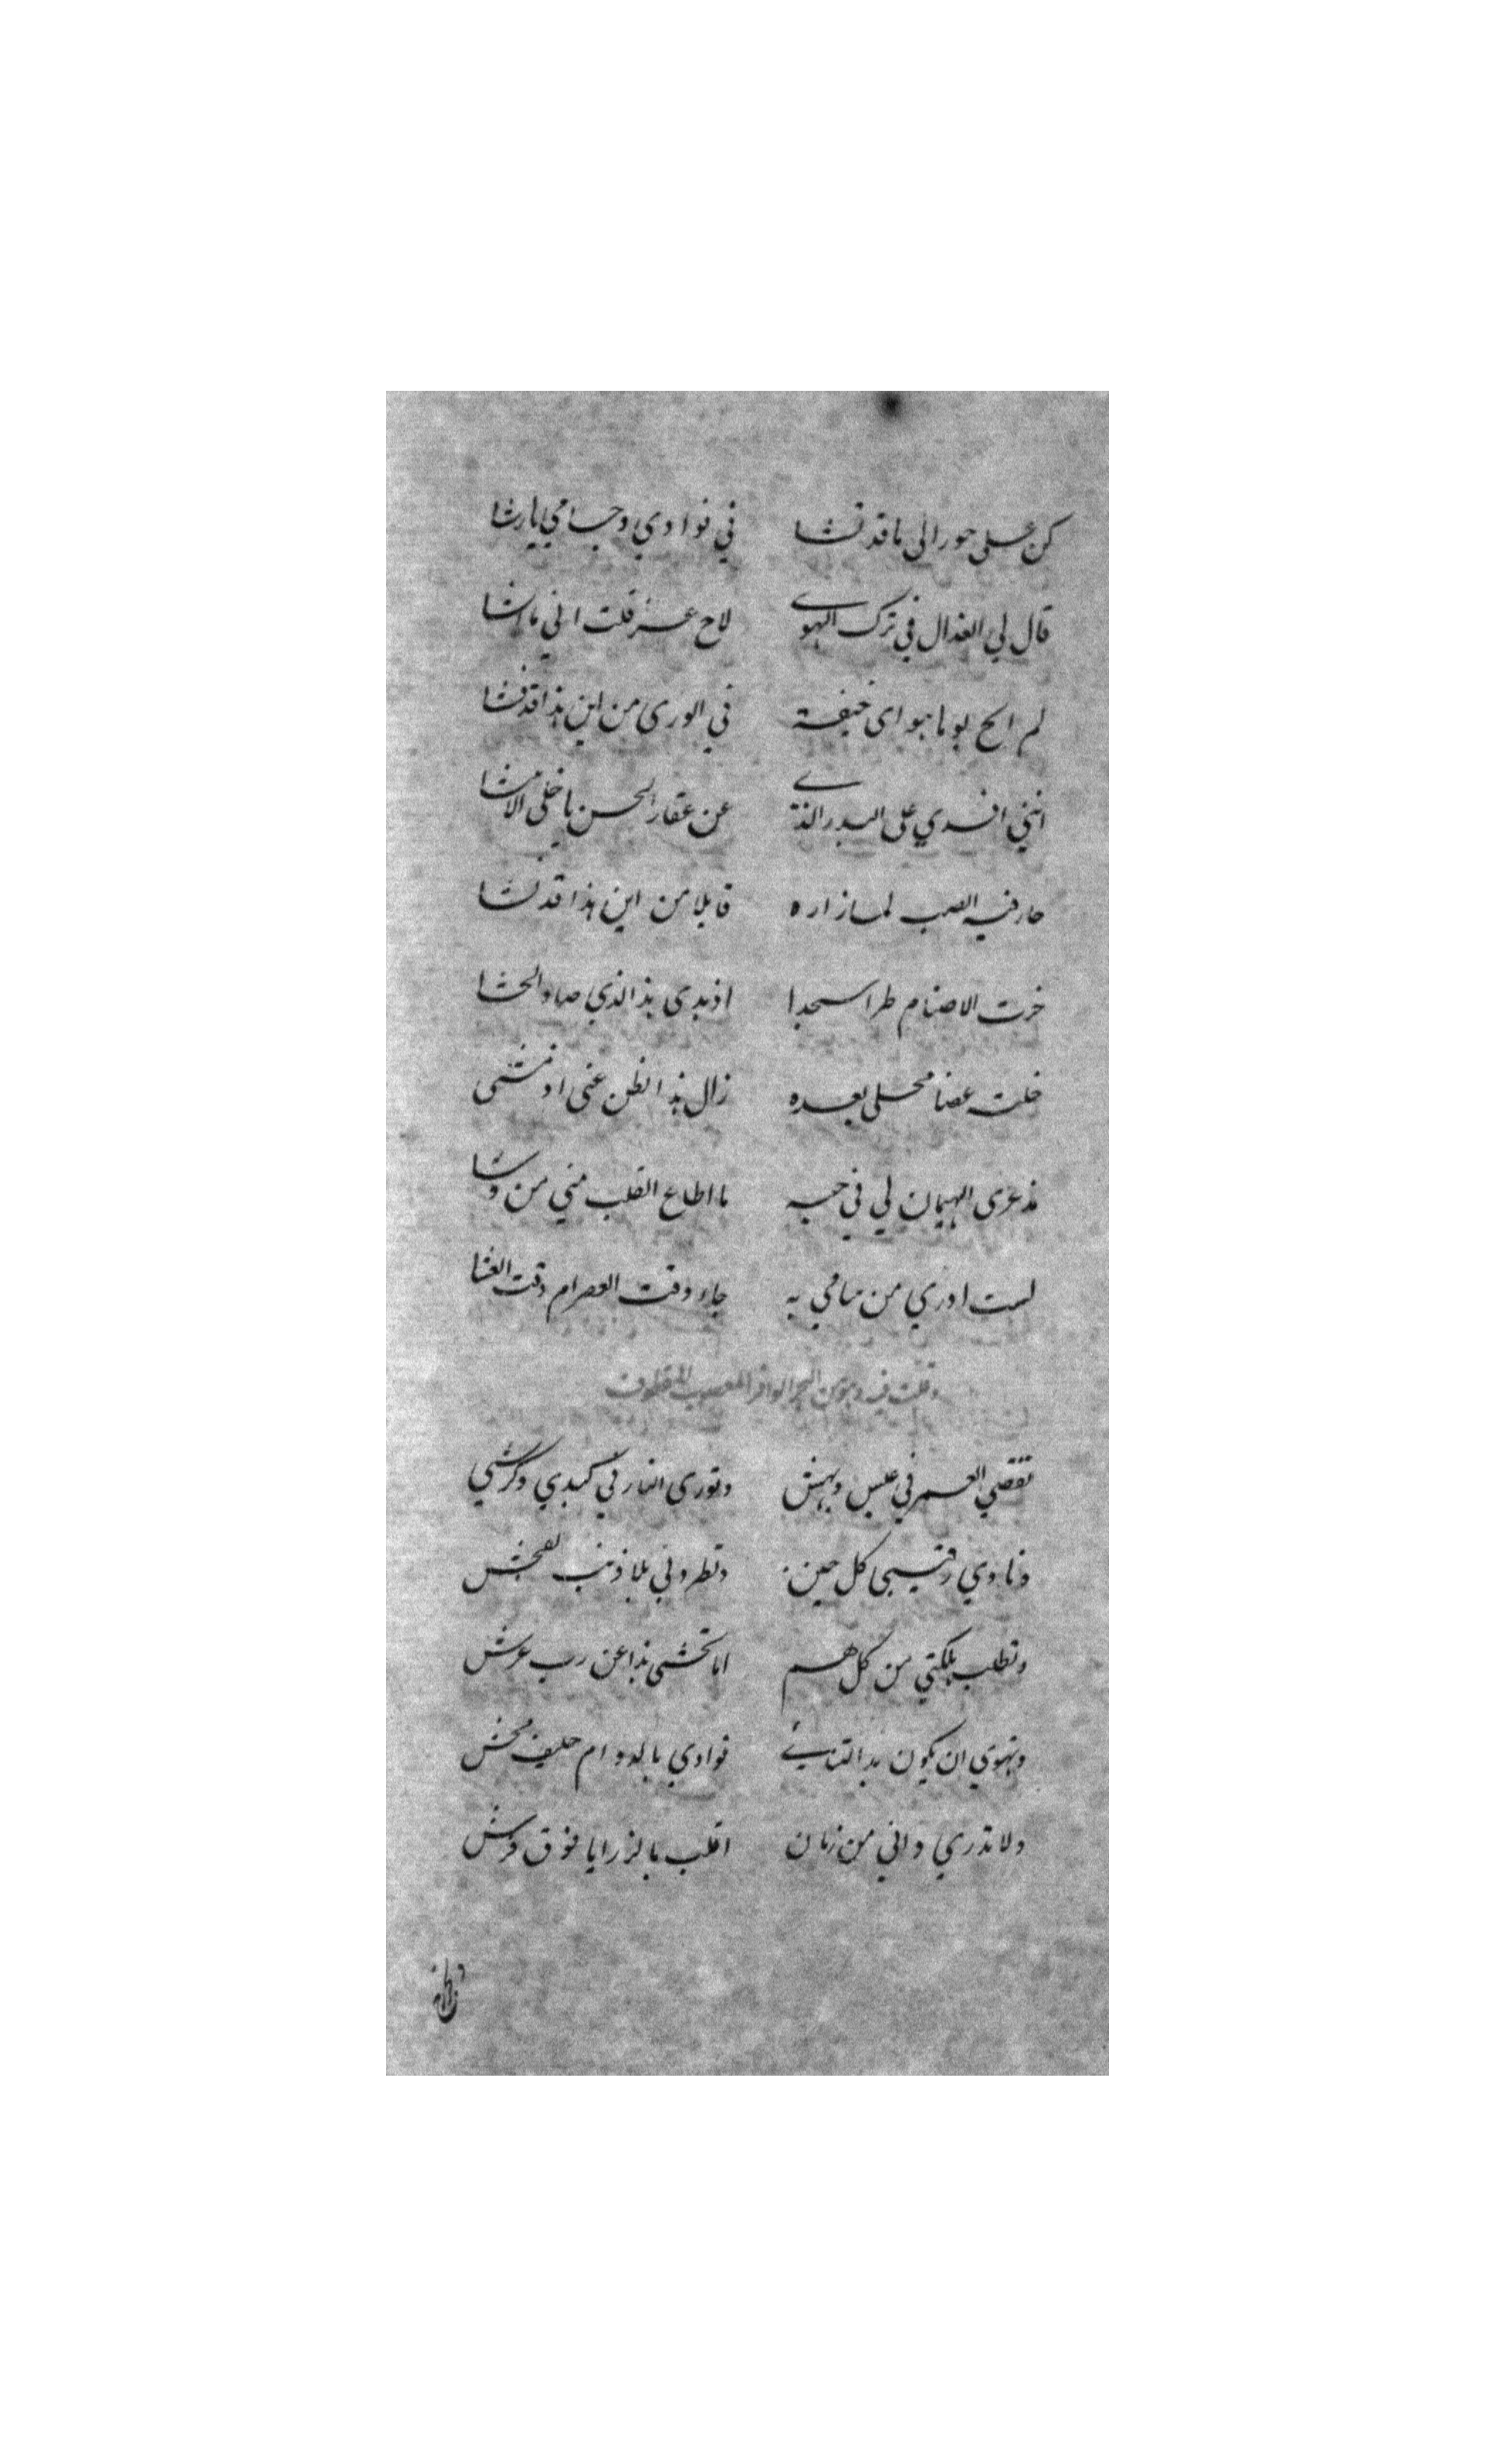 كن على جور الى ما قد نشا في فوادي وجسامي يا رشا
قال لي العذال في ترك الهوى لاح عذر قلت اني ما اشا
لم ابح يوما هواى خيفة في الورى من اين هذا قد فشا
انني افدي على البدر الذي عن عقار الحسن يا خلي
حار فيه الصب لما زاره قايلا من اين هذا قد نشا
خرت الاصنام طرا سجدا اذ بدى هذا الذي صاد الحشا
خلت غصنا محلى بعده زال هذا الظن عني اذ مشى
مذ عرى الهيمان لي في حبه ما اطاع القلب مني من وشا
لست ادري من منامي به جاء وقت العصر ام وقت العشا
وقلت فيه وهو من البحر الوافر المعصوب المقطوف
تقضي العمر في عيس وبهش وتورى النار في كبدي وكرشي
وناوي رقيبي كل حين وتطردني بلا ذنب لفحش
وتطلب هلكتي من كل هم اما تخشى بذا عن رب عرش
وتهوى ان يكون بذا التنائي فوادي بالدوام حليف
ولا تدري واني من زمان اقلب بالرزايا فوق فرش